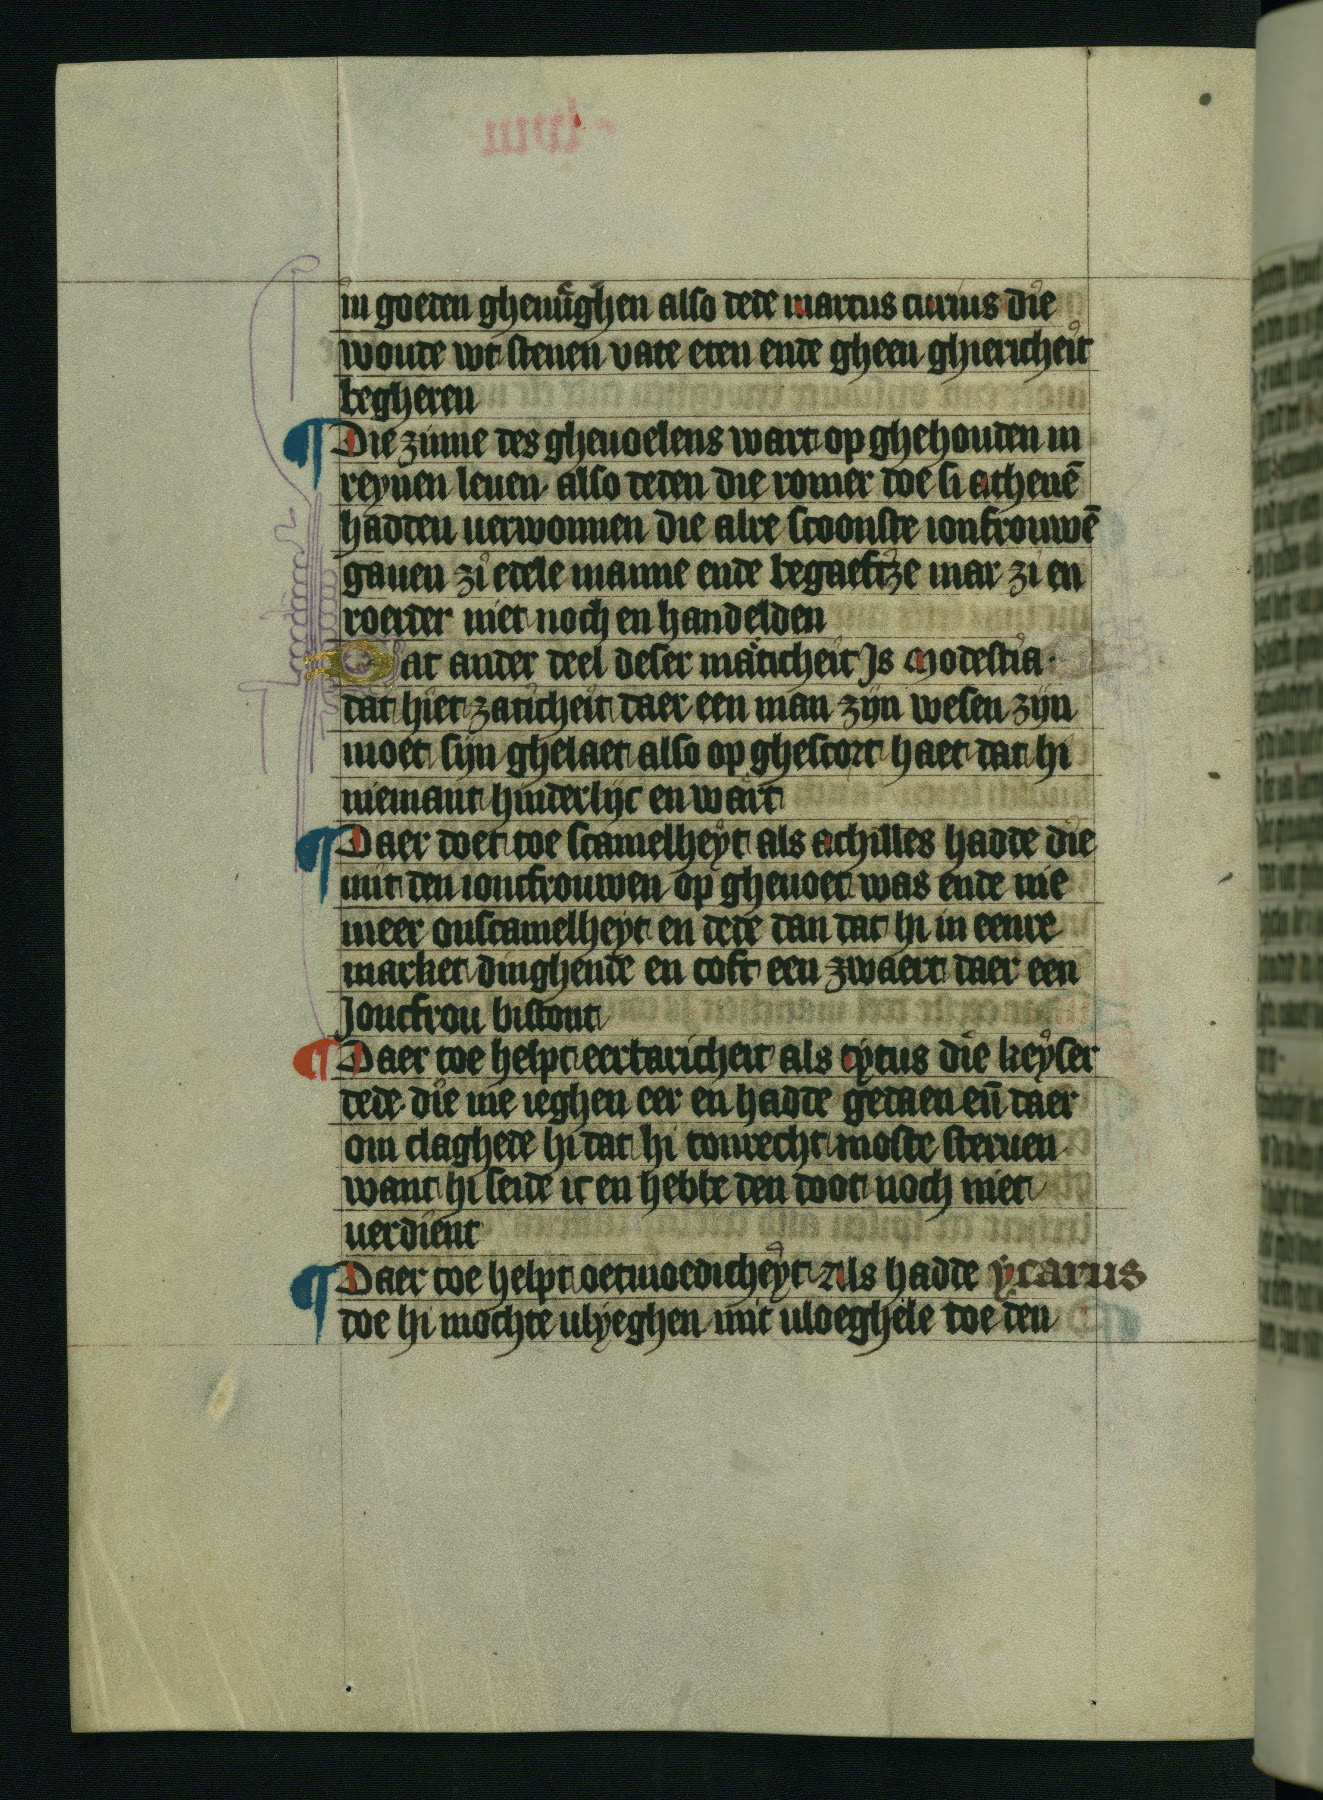 in goeden ghenūghen also dede marcus curius die
woude wt stenen vate eten ende gheen ghiericheit
begheren
¶ Die zinne des gheuoelens wart op ghehouden in
reynen leuen also deden die romer doe si athenē
hadden uerwonnen die alre scoonste ionfrouwē
gauen zi edele manne ende begaeftze mar zi en
roerder niet noch en handelden
Dat ander deel deser māticheit Js Modestia·
dat hiet zaticheit daer een man zijn wesen zijn
moet sijn ghelaet also op ghescort haet dat hi
niemant hinderlijc en wart
¶ Daer doet toe scamelheyt als achilles hadde die
mit den ioncfrouwen op gheuoet was ende nie
meer onscamelheyt en dede dan dat hi in eenre
market dinghende en coft een zwaert daer een
Joncfrou bistont
¶ Daer toe helpt eerbaricheit als tytus die keyser
dede die nie ieghen eer en hadde gedaen eñ daer
om claghede hi dat hi tonrecht moste steruen
want hi seide ic en hebbe den doot noch niet
uerdient
¶ Daer toe helpt oetmoedicheyt Als hadde ycarus
doe hi mochte ulyeghen mit uloeghele toe den